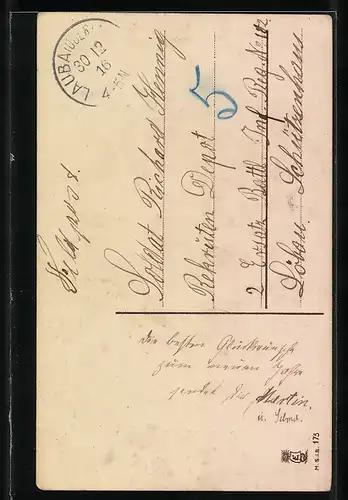 LAUBA
30 12
16
4-5N
Feldpost
Soldat Richard Hennig
Rekruten Depot
5
2 Ersatz Battl Inf. Reg. No 102
Löbau Schützenhaus
die besten Glückwünsche
zum neuen Jahre
sendet Dir Martin.
u.
M.S.i.B. 175